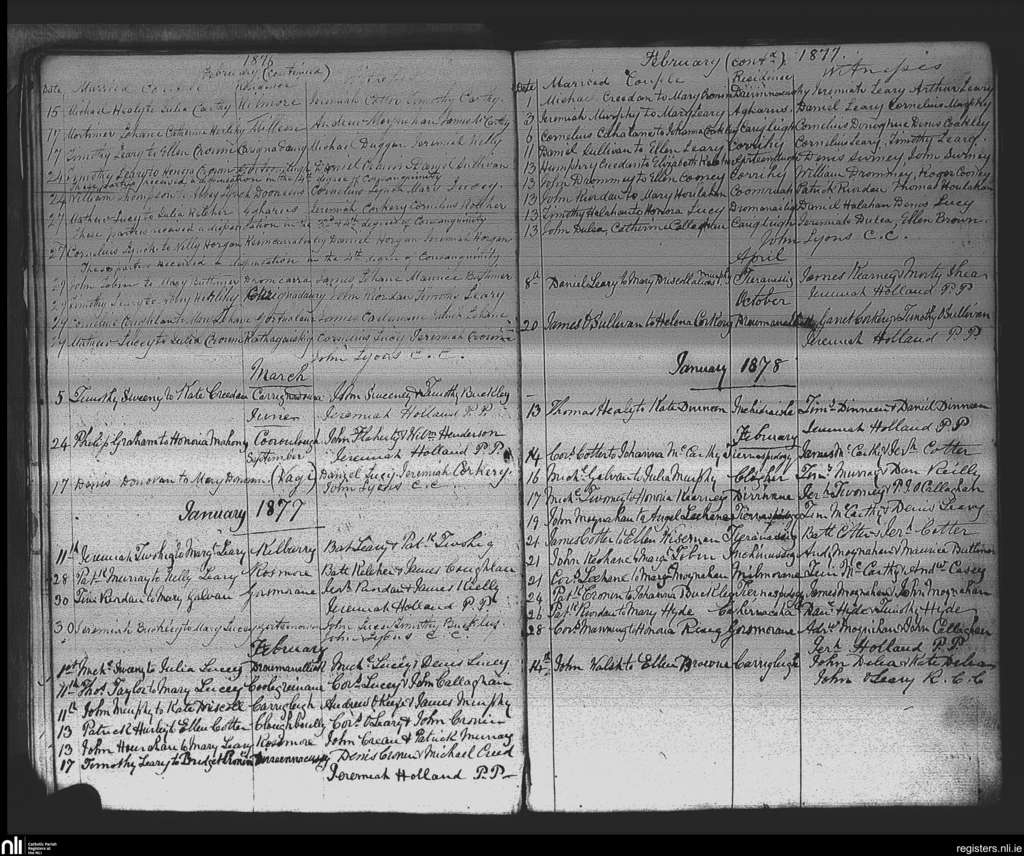 1876
February (continued)
Date Married Couple Residence Witnesses
15 Michael Healy to Julia Carthy Kilmore Jeremiah Cotter Timothy Carthy
17 Mortimer Lehane Catherine Herlihy Andrew Moynihan James McCarthy
17 Timothy Leary to Ellen Cronin Michael Duggan Jeremiah Kelly
24 Timothy Leary to Honora Cronin Daniel Cronin Daniel Sullivan
These parties received a dispensation in the 4th degree of Consanguinity
24 William Thompson to Mary Lynch Cornelius Lynch Mary
27 Mathew Lucey to Julia Kelleher Agharus Jeremiah Corkery Cornelius Kelleher
These parties received a dispensation in the 3rd & 4th degrees of Consanguinity
27 Cornelius Lynch to Nelly Horgan Daniel Horgan Jeremiah Horgan
These parties received a dispensation in the 4th degree of Consanguinity
29 John Tobin to Mary Buttimer Dromcarra James Lehane Maurice Buttimer
29 Timothy Leary to Herlihy John Riordan Timothy Leary
29 Cornelius Coughlan to Mary Lehane James Lehane
29 Mathew Lucey to Julia Cronin Rathagaisky Cornelius Lucey Jeremiah Cronin
John Lyons C. C.
March
5 Timothy Sweeny to Kate Creedan John Sweeney & Timothy Buckley
June Jeremiah Holland P. P.
24 Philip Graham to Honoria Mahony Cooronbough John Flaherty & Wilm Henderson
September Jeremiah Holland P. P.
17 Denis Donovan to Mary Donovan (Vags) Daniel Lucey Jeremiah Corkery
John Lyons C. C.
January 1877
11th Jeremiah Twohig to Margt Leary Kilberry Bat Leary & Patk Twohig
28 Patk Murray to Nelly Leary Rosmore Batt Kelleher & James Coughlan
30 Tim Riordan to Mary Galvan Gosmorane Jerh Riordan & James Kielly
Jeremiah Holland P. P.
30 Jeremiah Buckley to Mary Lucey Gortearown John Lucey Timothy Buckley
John Lyons C. C.
February
1st Michl to Julia Lucey Drowmanallick Michl Lucey & Denis Lucey
4th Thos Taylor to Mary Lucey Coolegreinane Cors Lucey & John Callaghan
11th John Murphy to Kate Driscoll Carrigleigh Andrew O'Keeffe & James Murphy
13 Patrick Hurley to Ellen Cotter Cloughboully Cors O'Leary & John Cronin
13 John Hourahan to Mary Leary Rosmore John Crean & Patrick Murray
17 Timothy Leary to Bridget Cronin Denis Cronin & Michael Creed
Jeremiah Holland P. P.
February (contd) 1877.
Date Married Couple Residence Witnesses
1 Michael Creedan to Mary Cronin Jeremiah Leary Arthur Leary
3 Jeremiah Murphy to Mary Agharus Daniel Leary Cornelius Murphy
6 Cornelius Cahalane to Johanna Coakley Caurgleigh Cornelius Donoghue Denis Coakley
11 Daniel Sullivan to Ellen Leary Corrihy Cornelius Leary Timothy Leary
13 Humphry Creedan to Elizabeth Denis Swiney John Swiney
13 John Drommey to Ellen Cooney Corrihy William Drommey, Roger Cooney
13 John Riordan to Mary Houlahan Coomrath Patrick Riordan Thomas Houlahan
13 Timothy Halahan to Honora Lucy Daniel Halahan Denis Lucy
13 John Dulea, Catherine Callaghan Caurgleigh Jeremiah Dulea, Ellen Brown
John Lyons C. C.
April
8th Daniel Leary to Mary Driscoll James Kearney & Morty Shea
October Jeremiah Holland P. P.
20 James O'Sullivan to Helena Corkery Drowmanallick Garret Corkery & Timothy O'Sullivan
Jeremiah Holland P. P.
January 1878
13 Thomas Healy to Kate Dinneen Inchidraohe Timy Dinneen & David Dinneen
February Jeremiah Holland P. P.
14 Cors Cotter to Johanna McCarthy Tiernaspidogy James McCarthy & Jerh Cotter
16 Michl Galvan to Julia Murphy Clogher Tim Murray & Dan Reilly
17 Michl Twomey to Honoria Kearney Dirrinane Jerh Twomey & P. J. O'Callaghan
19 John Moynahan to Lehane Tiernaspidogy Tim McCarthy & Denis Leary
21 James Cotter to Ellen Wiseman Batt Cotter & Jerh Cotter
21 John Keohane to Margt Tobin Inchinussig Andw Moynahan & Maurice Buttimer
21 Cors Leehane to Margt Moynahan Milmorane Tim McCarthy & Andw Casey
24 Patk Cronin to Johanna Buckley Tiernaspidogy James Moynahan & John Moynahan
26 Patk Riordan to Mary Hyde Cahirnacaha Rawd Hyde & Timothy Hyde
28 Cors Manning to Honoria Ring Gosmorane Adw Moynihan & Dan Callaghan
Jerh Holland P. P.
14th John Walsh to Ellen Browne Carrigleigh John Delea & Kate Delea
John O'Leary R. C. C
nli Catholic Parish Registers at the NLI
registers.nli.ie